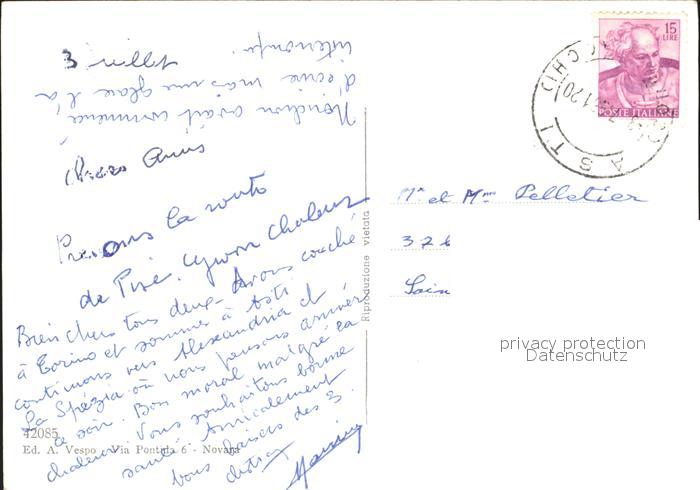 3 juillet
avait commencé
d'écrire mais une glace l'a
interrompu
Chers Amis
Prenons la route
de Pise. chaleur
Bien chers tous deux. Avons couché
à Torino et sommes à Asti
continuons vers Alexandria et
la Spézia où nous pensons arriver
ce soir. Bon moral malgré la
chaleur. Vous souhaitons bonne
santé Amicalement
bons baisers des 3.
42085
Ed. A. Vespo - Via Pontida 6 - Novara
Riproduzione vietata
15
LIRE
POSTE ITALIANE
ASTI
Mr et Mme Pelletier
326
privacy protection
Datenschutz